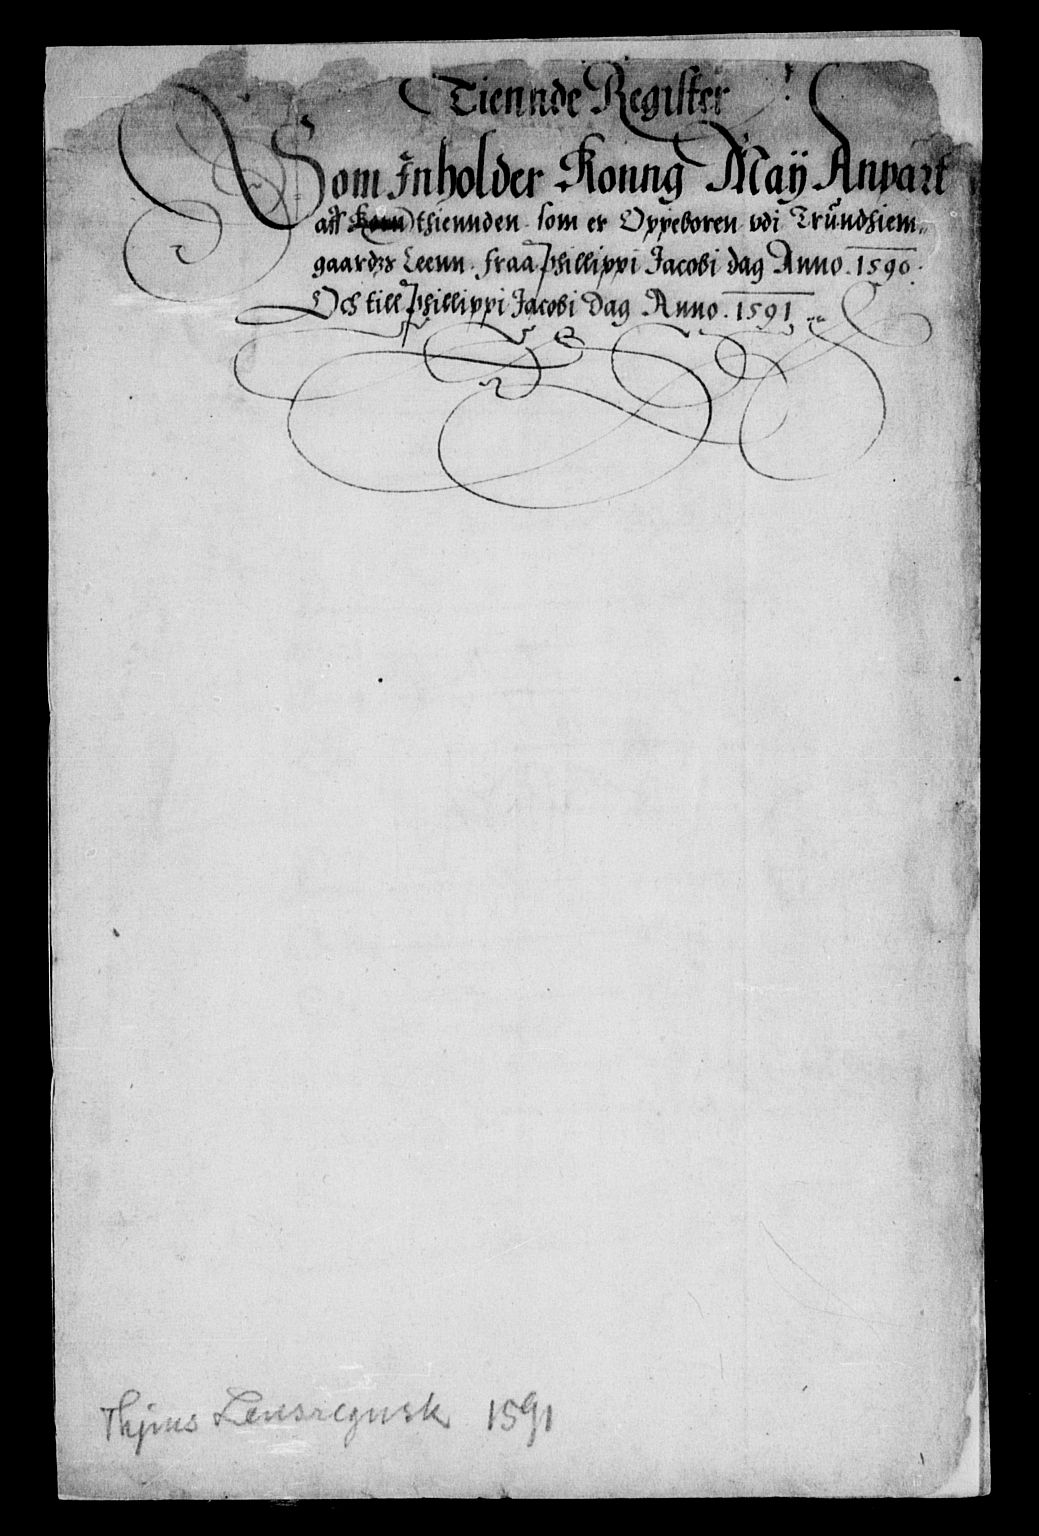 Tiennde Register
Som Inholder Konng May Anpart
aff Korn thiennden som er Oppeboren vdi Trundhiem„
gaardz Leenn fraa Phillippi Jacobi dag Anno. 1590.
Och till Phillippi Jacobi Dag Anno. 1591
Thjms Lensregnsk 1591